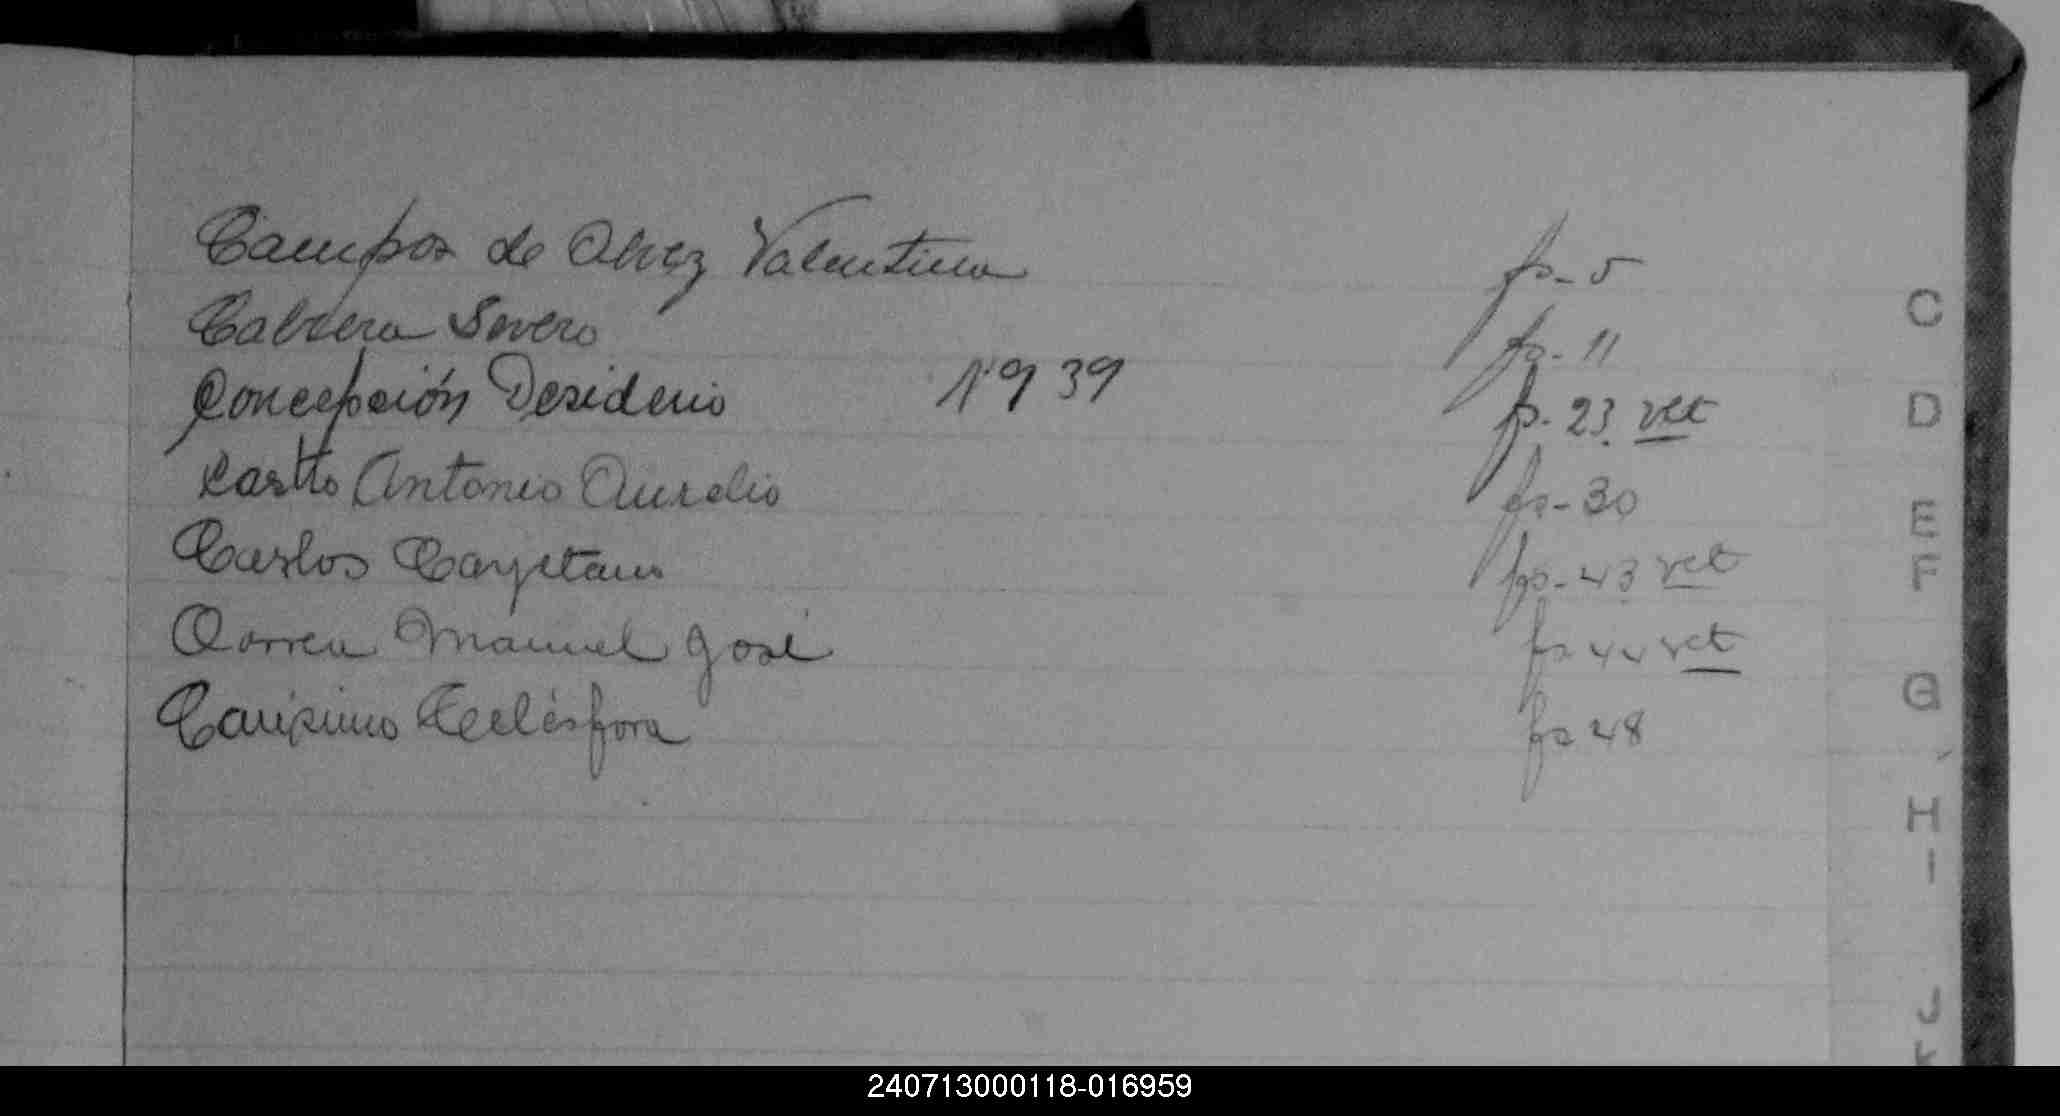 Campos de Alvez Valentina fs- 5
Cabrera Severo fs- 11
Concepción Desiderio Nº 39 fs- 23 vct
Castto Antonio Aurelio fs- 30
Carlos Cayetano fgs- 43 vct
Correa Manuel José fs 44 vct
Carísimo Telésfora fs 48
C
D
E
F
G
H
I
J
K
240713000118-016959